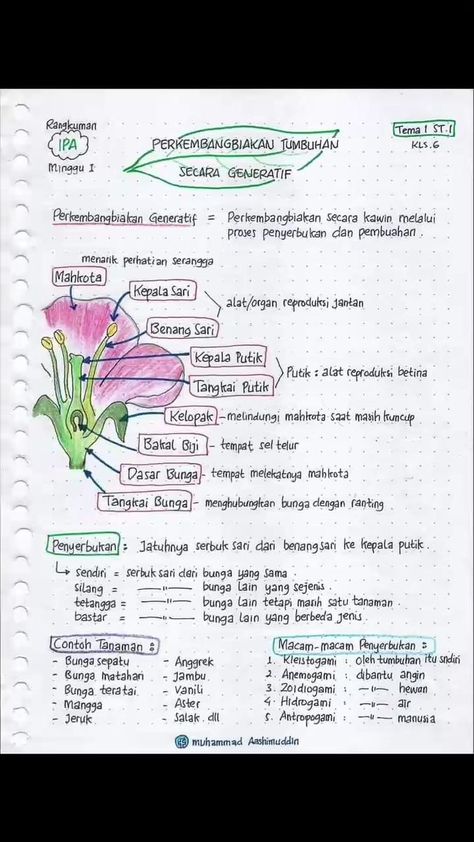 Rangkuman
IPA
Minggu I
PERKEMBANGBIAKAN TUMBUHAN
SECARA GENERATIF
Tema 1 ST.1
KLS.6
Perkembangbiakan Generatif = Perkembangbiakan secara kawin melalui
proses penyerbukan dan pembuahan.
menarik perhatian serangga
Mahkota
Kepala Sari
alat/organ reproduksi jantan
Benang Sari
Kepala Putik
Putik : alat reproduksi betina
Tangkai Putik
Kelopak - melindungi mahkota saat masih kuncup
Bakal Biji - tempat sel telur
Dasar Bunga - tempat melekatnya mahkota
Tangkai Bunga - menghubungkan bunga dengan ranting
Penyerbukan : Jatuhnya serbuk sari dari benang sari ke kepala putik.
sendiri = serbuk sari dari bunga yang sama.
silang = —"— bunga lain yang sejenis.
tetangga = —"— bunga lain tetapi masih satu tanaman.
bastar = —"— bunga lain yang berbeda jenis.
Contoh Tanaman :
- Bunga sepatu
- Bunga matahari
- Bunga teratai
- Mangga
- Jeruk
- Anggrek
- Jambu
- Vanili
- Aster
- Salak. dll
Macam-macam Penyerbukan :
1. Kleistogami : oleh tumbuhan itu sndiri
2. Anemogami : dibantu angin
3. Zoidiogami : —"— hewan
4. Hidrogami : —"— air
5. Antropogami : —"— manusia
muhammad Aashimuddin